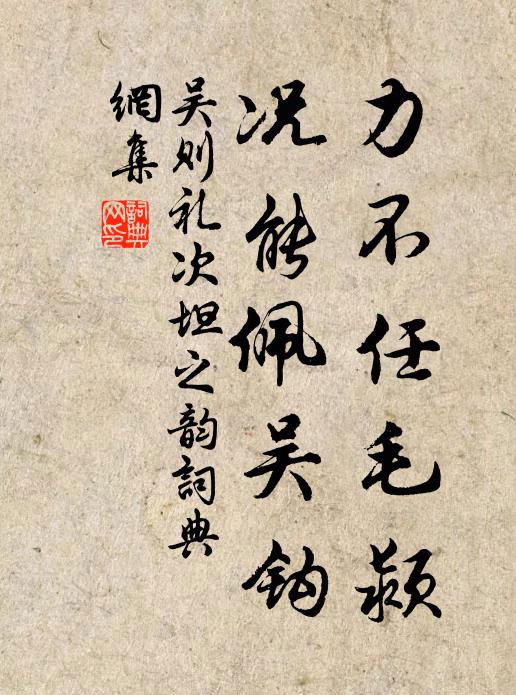 力不任毛颍
况能佩吴钩
吴则礼次坦之韵詞典
網集
詞典
网印